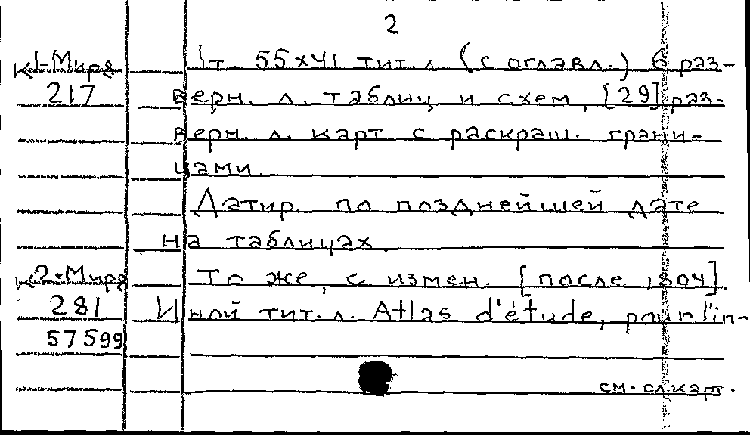 2
К1-Мира 1т. 55х41 тит. л. (с оглавл.) 6 раз-
217 верн. л. таблиц и схем, [29] раз-
верн. л. карт с раскраш. грани-
цами.
Датир. по позднейшей дате
на таблицах.
К2-Мира То же, с измен. [после 1804].
281 Иной тит. л. Atlas d'étude, pour l'in-
57599
см. сл. карт.